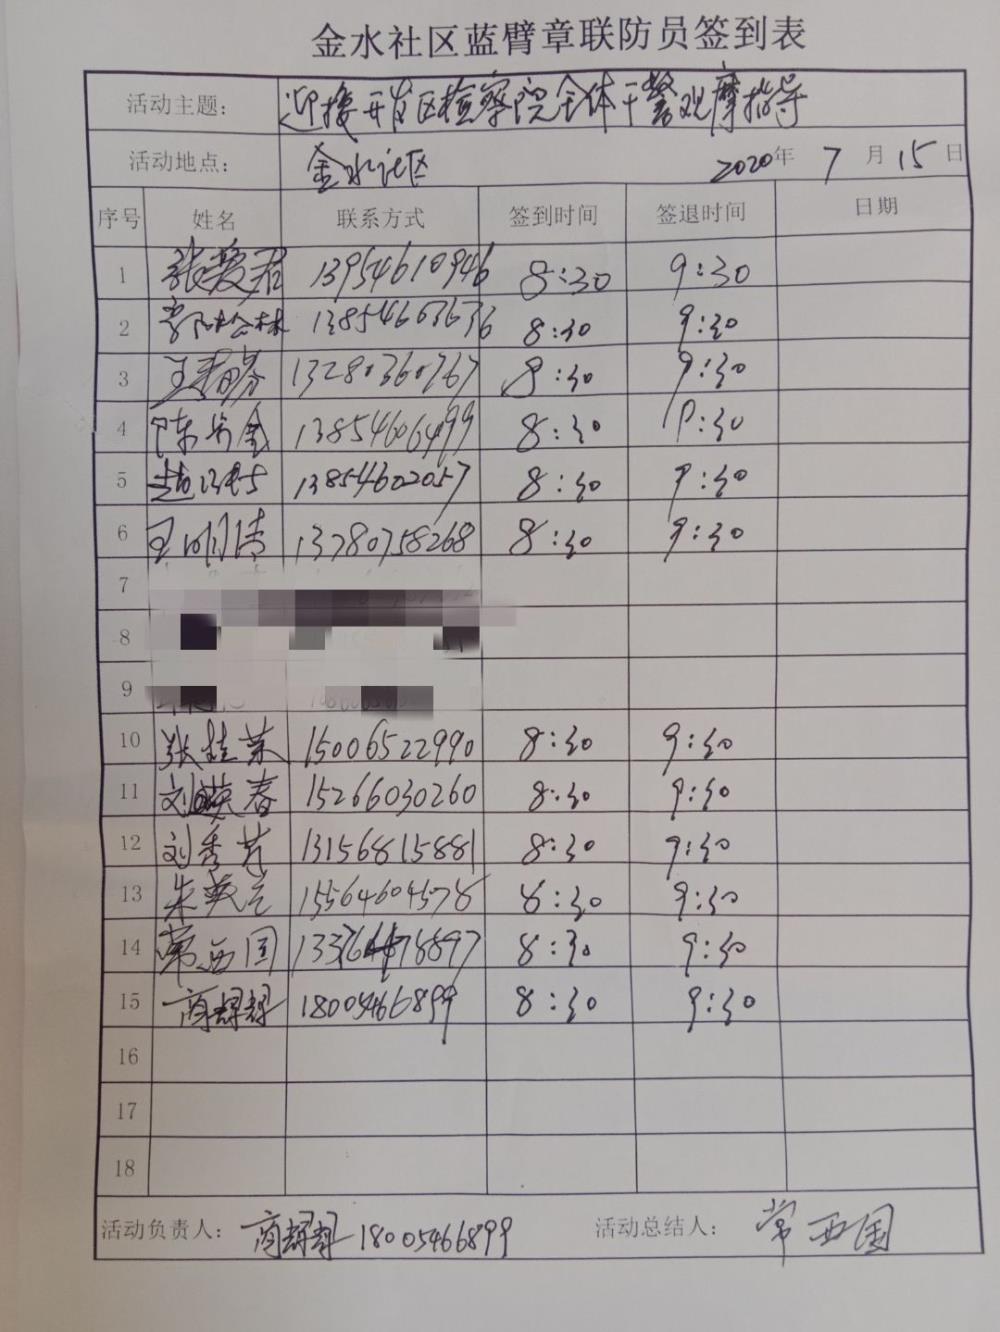 金水社区蓝臂章联防员签到表
活动主题： 迎接开发区检察院全体干警观摩指导
活动地点： 金水社区 2020年 7月 15日
序号 姓名 联系方式 签到时间 签退时间 日期
1 张爱君 13954610946 8:30 9:30
2 13854663636 8:30 9:30
3 王春芬 13280360767 8:30 9:30
4 陈 13854606499 8:30 9:30
5 赵 13854602057 8:30 9:30
6 王明清 13780758268 8:30 9:30
7
8
9
10 张桂荣 15006522990 8:30 9:30
11 刘英春 15266030260 8:30 9:30
12 刘秀芳 13156815881 8:30 9:30
13 朱 15564604578 8:30 9:30
14 常西国 8:30 9:30
15 商辉辉 18005466899 8:30 9:30
16
17
18
活动负责人： 商辉辉 18005466899 活动总结人： 常西国